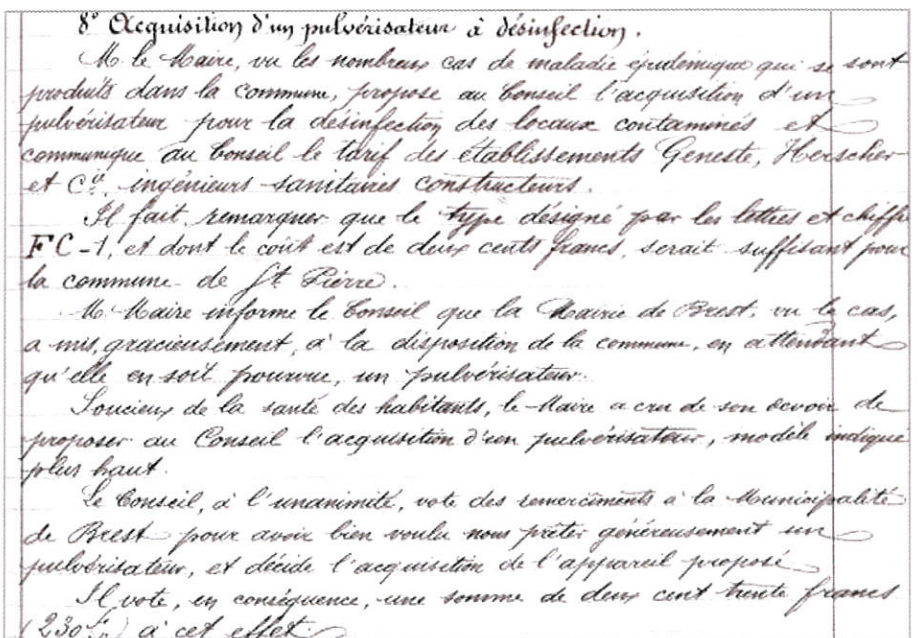 8° Acquisition d'un pulvérisateur à désinfection.
M. le Maire, vu les nombreux cas de maladie épidémique qui se sont
produits dans la commune, propose au Conseil l'acquisition d'un
pulvérisateur pour la désinfection des locaux contaminés et
communique au Conseil le tarif des établissements Geneste, Herscher
et Cie, ingénieurs sanitaires constructeurs.
Il fait remarquer que le type désigné par les lettres et chiffre
FC-1, et dont le coût est de deux cents francs, serait suffisant pour
la commune de St Pierre.
M. Maire informe le Conseil que la Mairie de Brest, vu le cas,
a mis, gracieusement, à la disposition de la commune, en attendant
qu'elle en soit pourvue, un pulvérisateur.
Soucieux de la santé des habitants, le Maire a cru de son devoir de
proposer au Conseil l'acquisition d'un pulvérisateur, modèle indiqué
plus haut.
Le Conseil, à l'unanimité, vote des remerciments à la Municipalité
de Brest pour avoir bien voulu nous prêter généreusement un
pulvérisateur, et décide l'acquisition de l'appareil proposé
Il vote, en conséquence, une somme de deux cent trente francs
(230 f.) à cet effet.